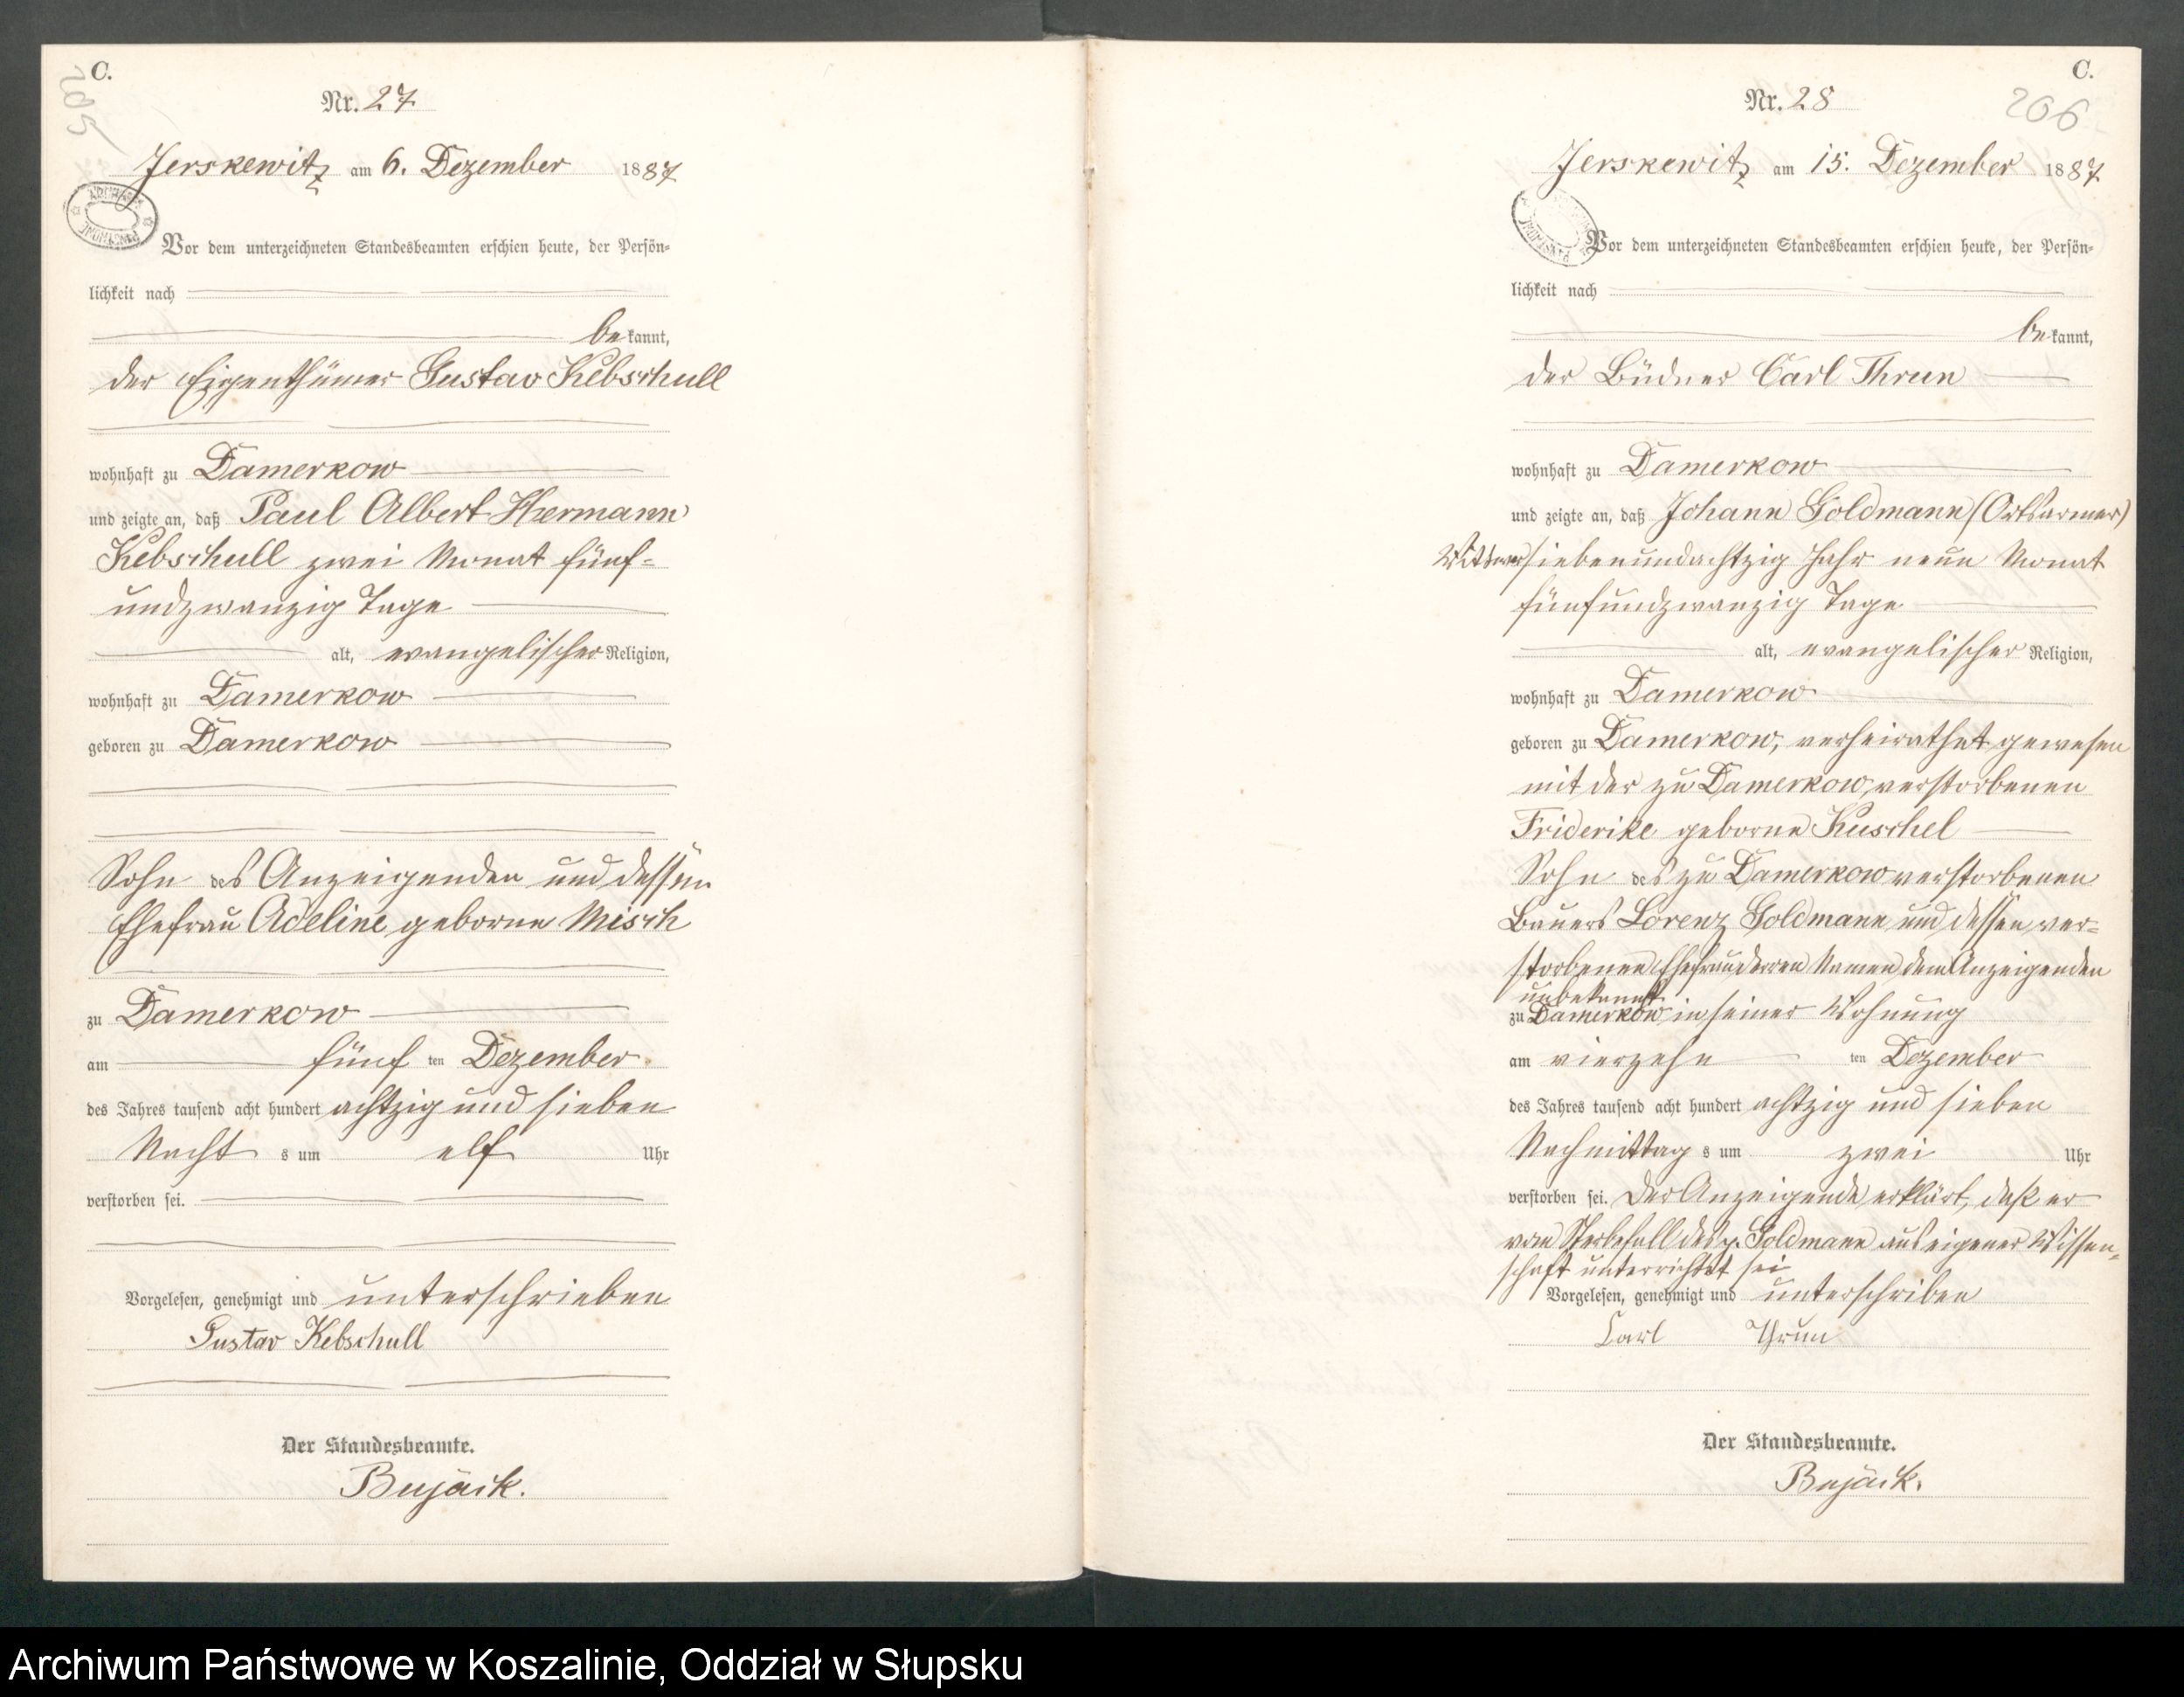 C.
205
Nr. 27
Jerskewitz am 6. Dezember 1887
Vor dem unterzeichneten Standesbeamten erschien heute, der Persön-
lichkeit nach
bekannt,
der Eigenthümer Gustav Kebschull
wohnhaft zu Damerkow
und zeigte an, daß Paul Albert Hermann
Kebschull zwei Monat fünf-
undzwanzig Tage
alt, evangelischer Religion,
wohnhaft zu Damerkow
geboren zu Damerkow
Sohn des Anzeigenden und dessen
Ehefrau Adeline geborne Misch
zu Damerkow
am fünf ten Dezember
des Jahres tausend acht hundert achtzig und sieben
Nacht s um elf Uhr
verstorben sei.
Vorgelesen, genehmigt und unterschrieben
Gustav Kebschull
Der Standesbeamte.
Bujäck.
C.
206
Nr. 28
Jerskewitz am 15. Dezember 1887
Vor dem unterzeichneten Standesbeamten erschien heute, der Persön-
lichkeit nach
bekannt,
der Büdner Carl Thrun
wohnhaft zu Damerkow
und zeigte an, daß Johann Goldmann (Ortsarmer)
Wittwer siebenundachtzig Jahr neun Monat
fünfundzwanzig Tage
alt, evangelischer Religion,
wohnhaft zu Damerkow
geboren zu Damerkow, verheirathet gewesen
mit der zu Damerkow verstorbenen
Friderike geborne Kuschel
Sohn des zu Damerkow verstorbenen
Bauers Lorenz Goldmann und dessen ver-
storbenen Ehefrau deren Namen dem Anzeigenden
unbekannt
zu Damerkow in seiner Wohnung
am vierzehn ten Dezember
des Jahres tausend acht hundert achtzig und sieben
Nachmittag s um zwei Uhr
verstorben sei. Der Anzeigende erklärt, daß er
vom Sterbefall des p. Goldmann aus eigener Wissen-
schaft unterrichtet sei
Vorgelesen, genehmigt und unterschriben
Carl Thrun
Der Standesbeamte.
Bujäck.
Archiwum Państwowe w Koszalinie, Oddział w Słupsku